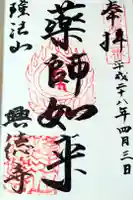 奉拝
平成二十八年四月三日
薬師如来
瑠法山
興徳寺